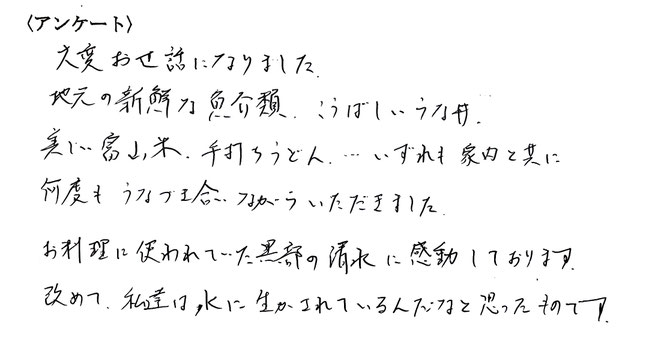 〈アンケート〉
大変お世話になりました.
地元の新鮮な魚介類. こうばしいうな丼.
美しい富山米. 手打ちうどん. … いずれも家内と共に
何度もうなづき合いながらいただきました.
お料理に使われていた黒部の清水に感動しております.
改めて. 私達は, 水に生かされているんだなと思ったものです.